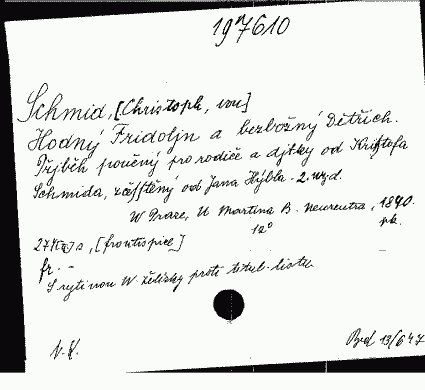 197610
Schmid, [Christoph, von]
Hodný Fridoljn a bezbožný Dětřich.
Přjběh poučný pro rodiče a djtky od Krištofa
Schmida, zčesstěný od Jana Hýbla. 2. wyd.
W Praze, U Martina B. Neureutra, 1840.
12° pk.
s, [frontispice]
fr. -
S rytinou W. proti titul. listu
N. K.
13/647